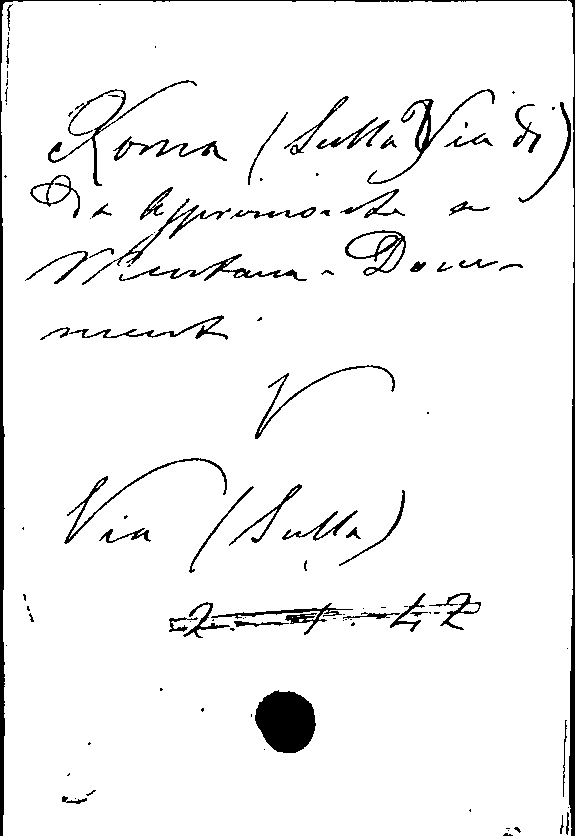 Roma (Sulla Via di)
Da Aspromonte a
Mentana - Docu-
menti
V
Via (Sulla)
2. 1. 42